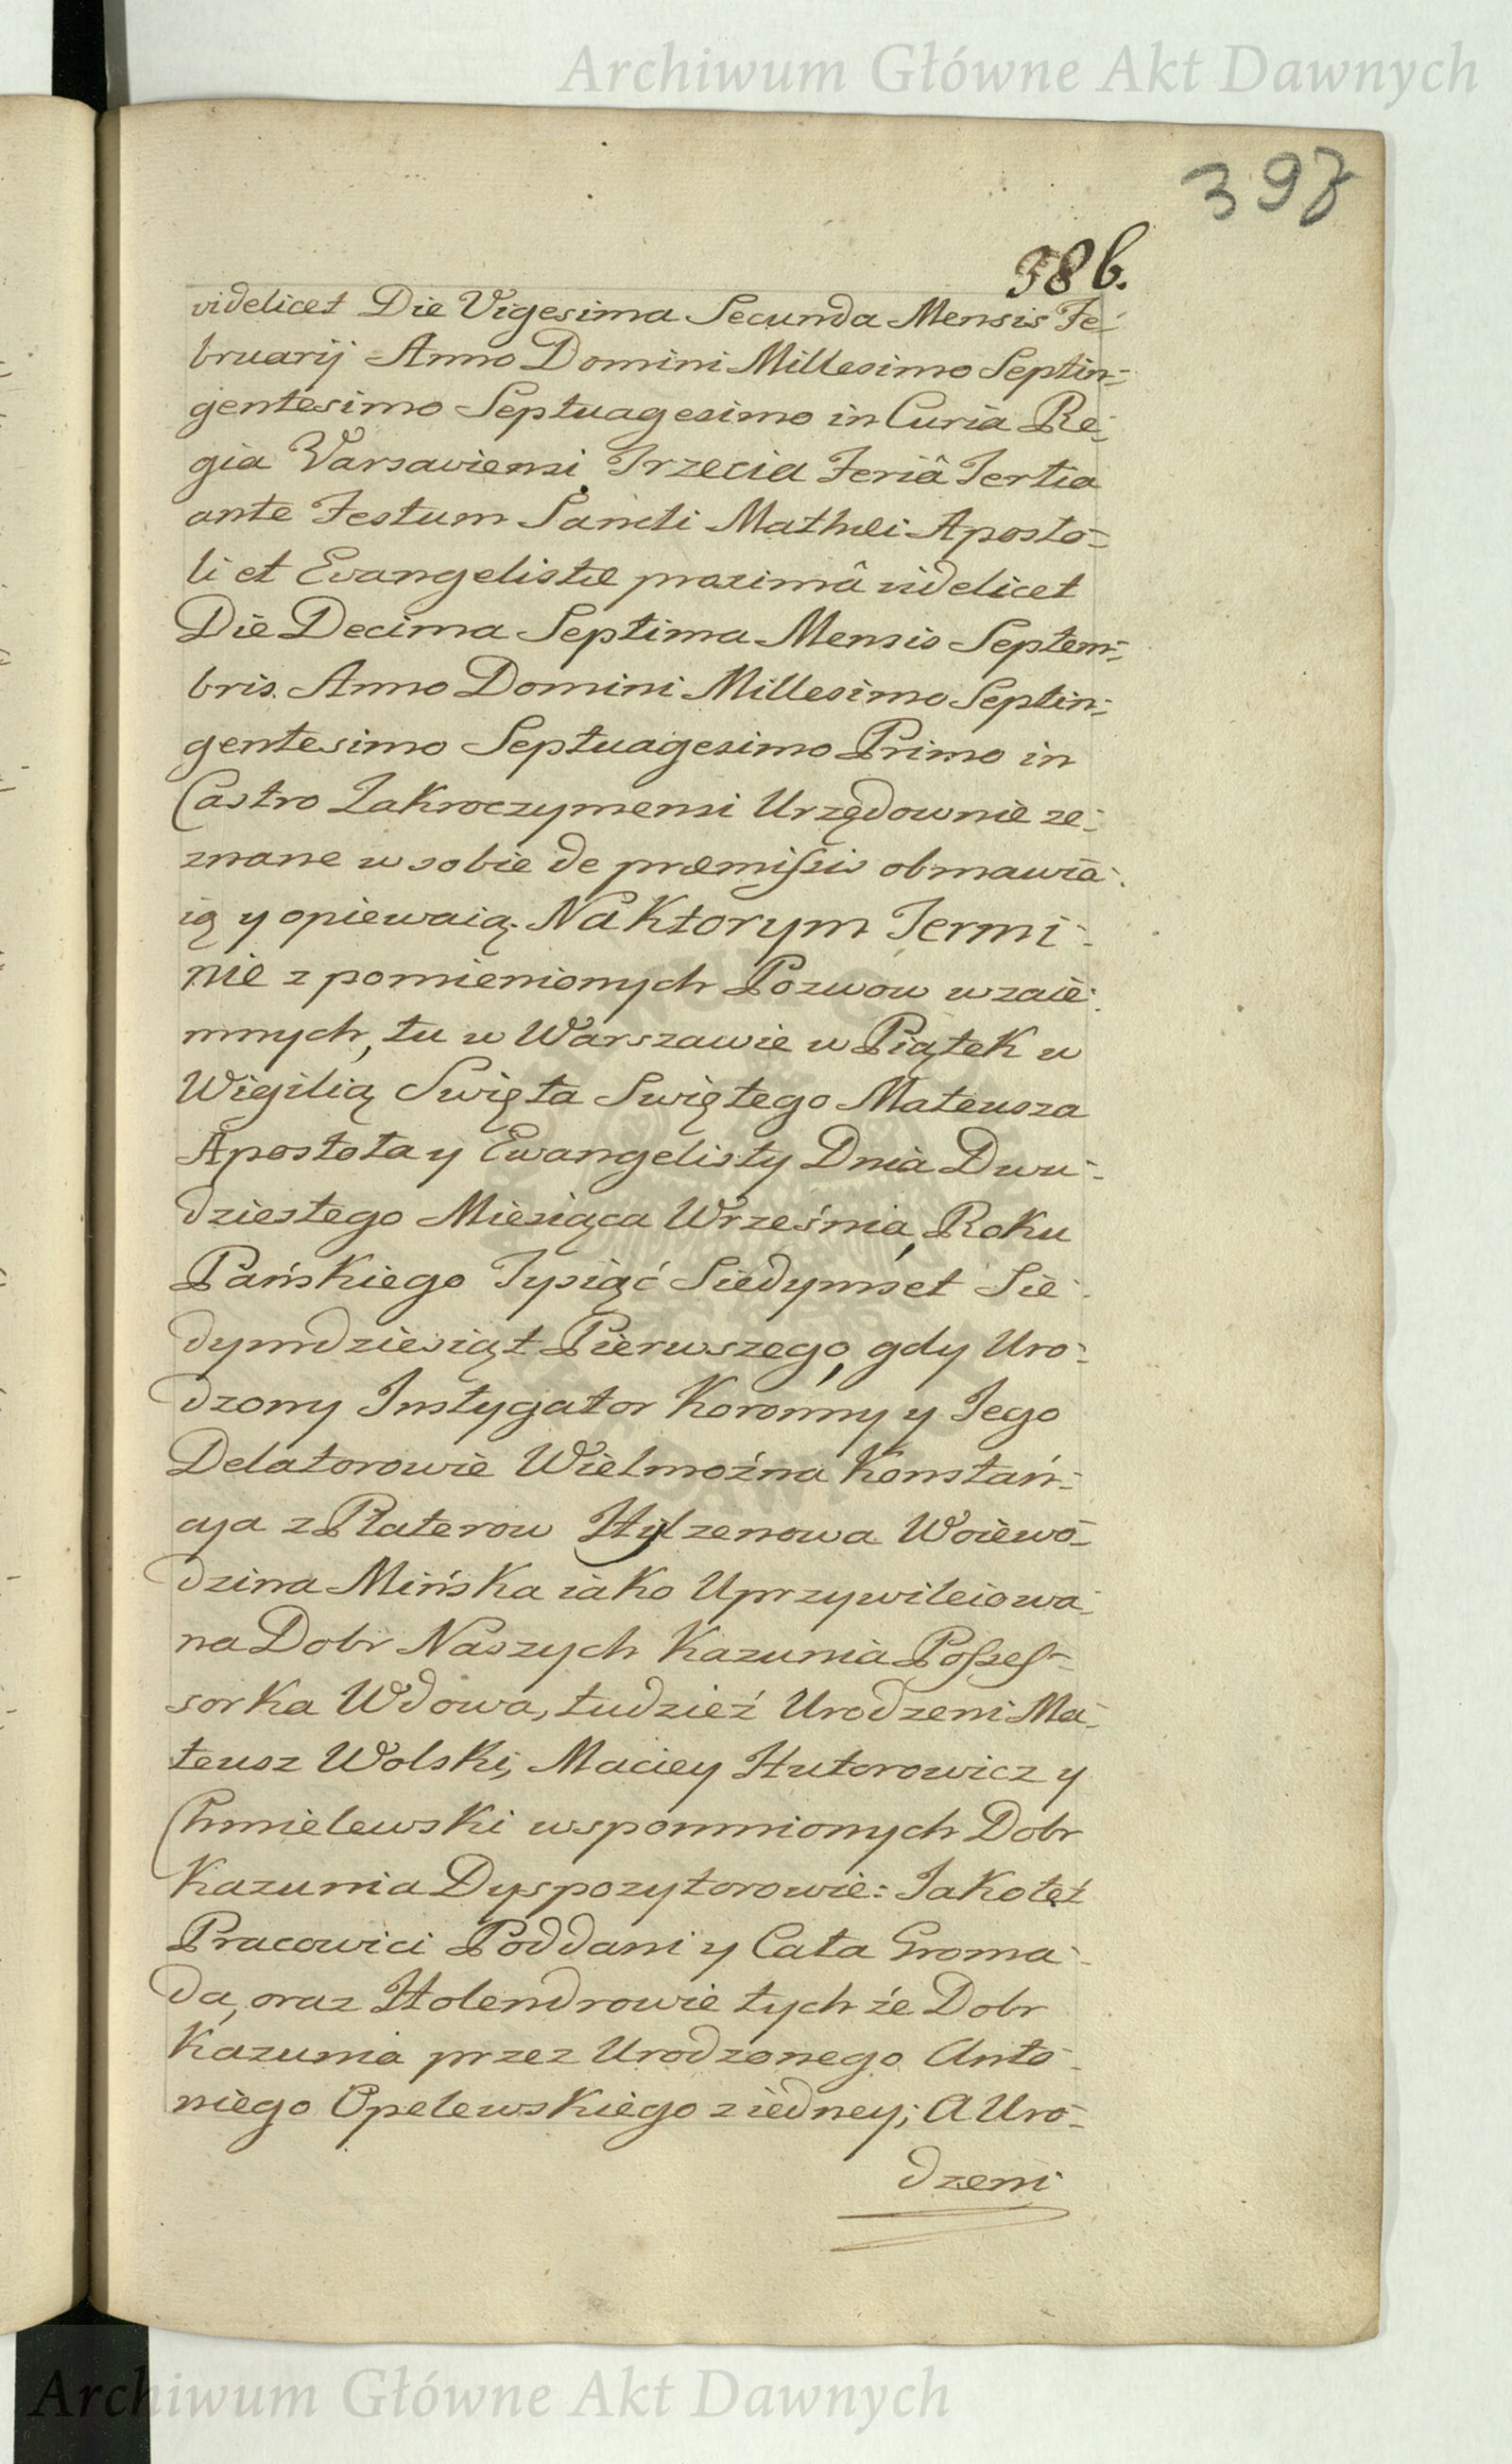 Archiwum Główne Akt Dawnych
397
386.
videlicet Die Vigesima Secunda Mensis Fe-
bruarij Anno Domini Millesimo Septin-
gentesimo Septuagesimo in Curia Re-
gia Varsaviensi. Trzecia Feriâ Tertia
ante Festum Sancti Mathæi Aposto-
li et Evangelistæ proximâ videlicet
Die Decima Septima Mensis Septem-
bris Anno Domini Millesimo Septin-
gentesimo Septuagesimo Primo in
Castro Zakroczymensi Urzędownie ze-
znane w sobie de præmissis obmawia-
ią y opiewaią. Na Ktorym Termi-
nie z pomienionych Pozwow wzaie-
mnych, tu w Warszawie w Piątek w
Wigilią Swięta Swiętego Mateusza
Apostoła y Ewangelisty Dnia Dwu-
dziestego Miesiąca Września, Roku
Pańskiego Tysiąć Siedymset Sie-
dymdziesiąt Pierwszego, gdy Uro-
dzony Instygator Koronny y Jego
Delatorowie Wielmożna Konstań-
cya z Platerow Hylzenowa Woiewo-
dzina Mińska iako Uprzywileiowa-
na Dobr Naszych Kazunia Possess-
sorka Wdowa, tudzież Urodzeni Ma-
teusz Wolski, Maciey Hutorowicz y
Chmielewski wspomnionych Dobr
Kazunia Dyspozytorowie: Jako też
Pracowici Poddani y Cała Groma-
da, oraz Holendrowie tych że Dobr
Kazunia przez Urodzonego Anto-
niego Opelewskiego z iedney; A Uro-
dzeni
Archiwum Główne Akt Dawnych